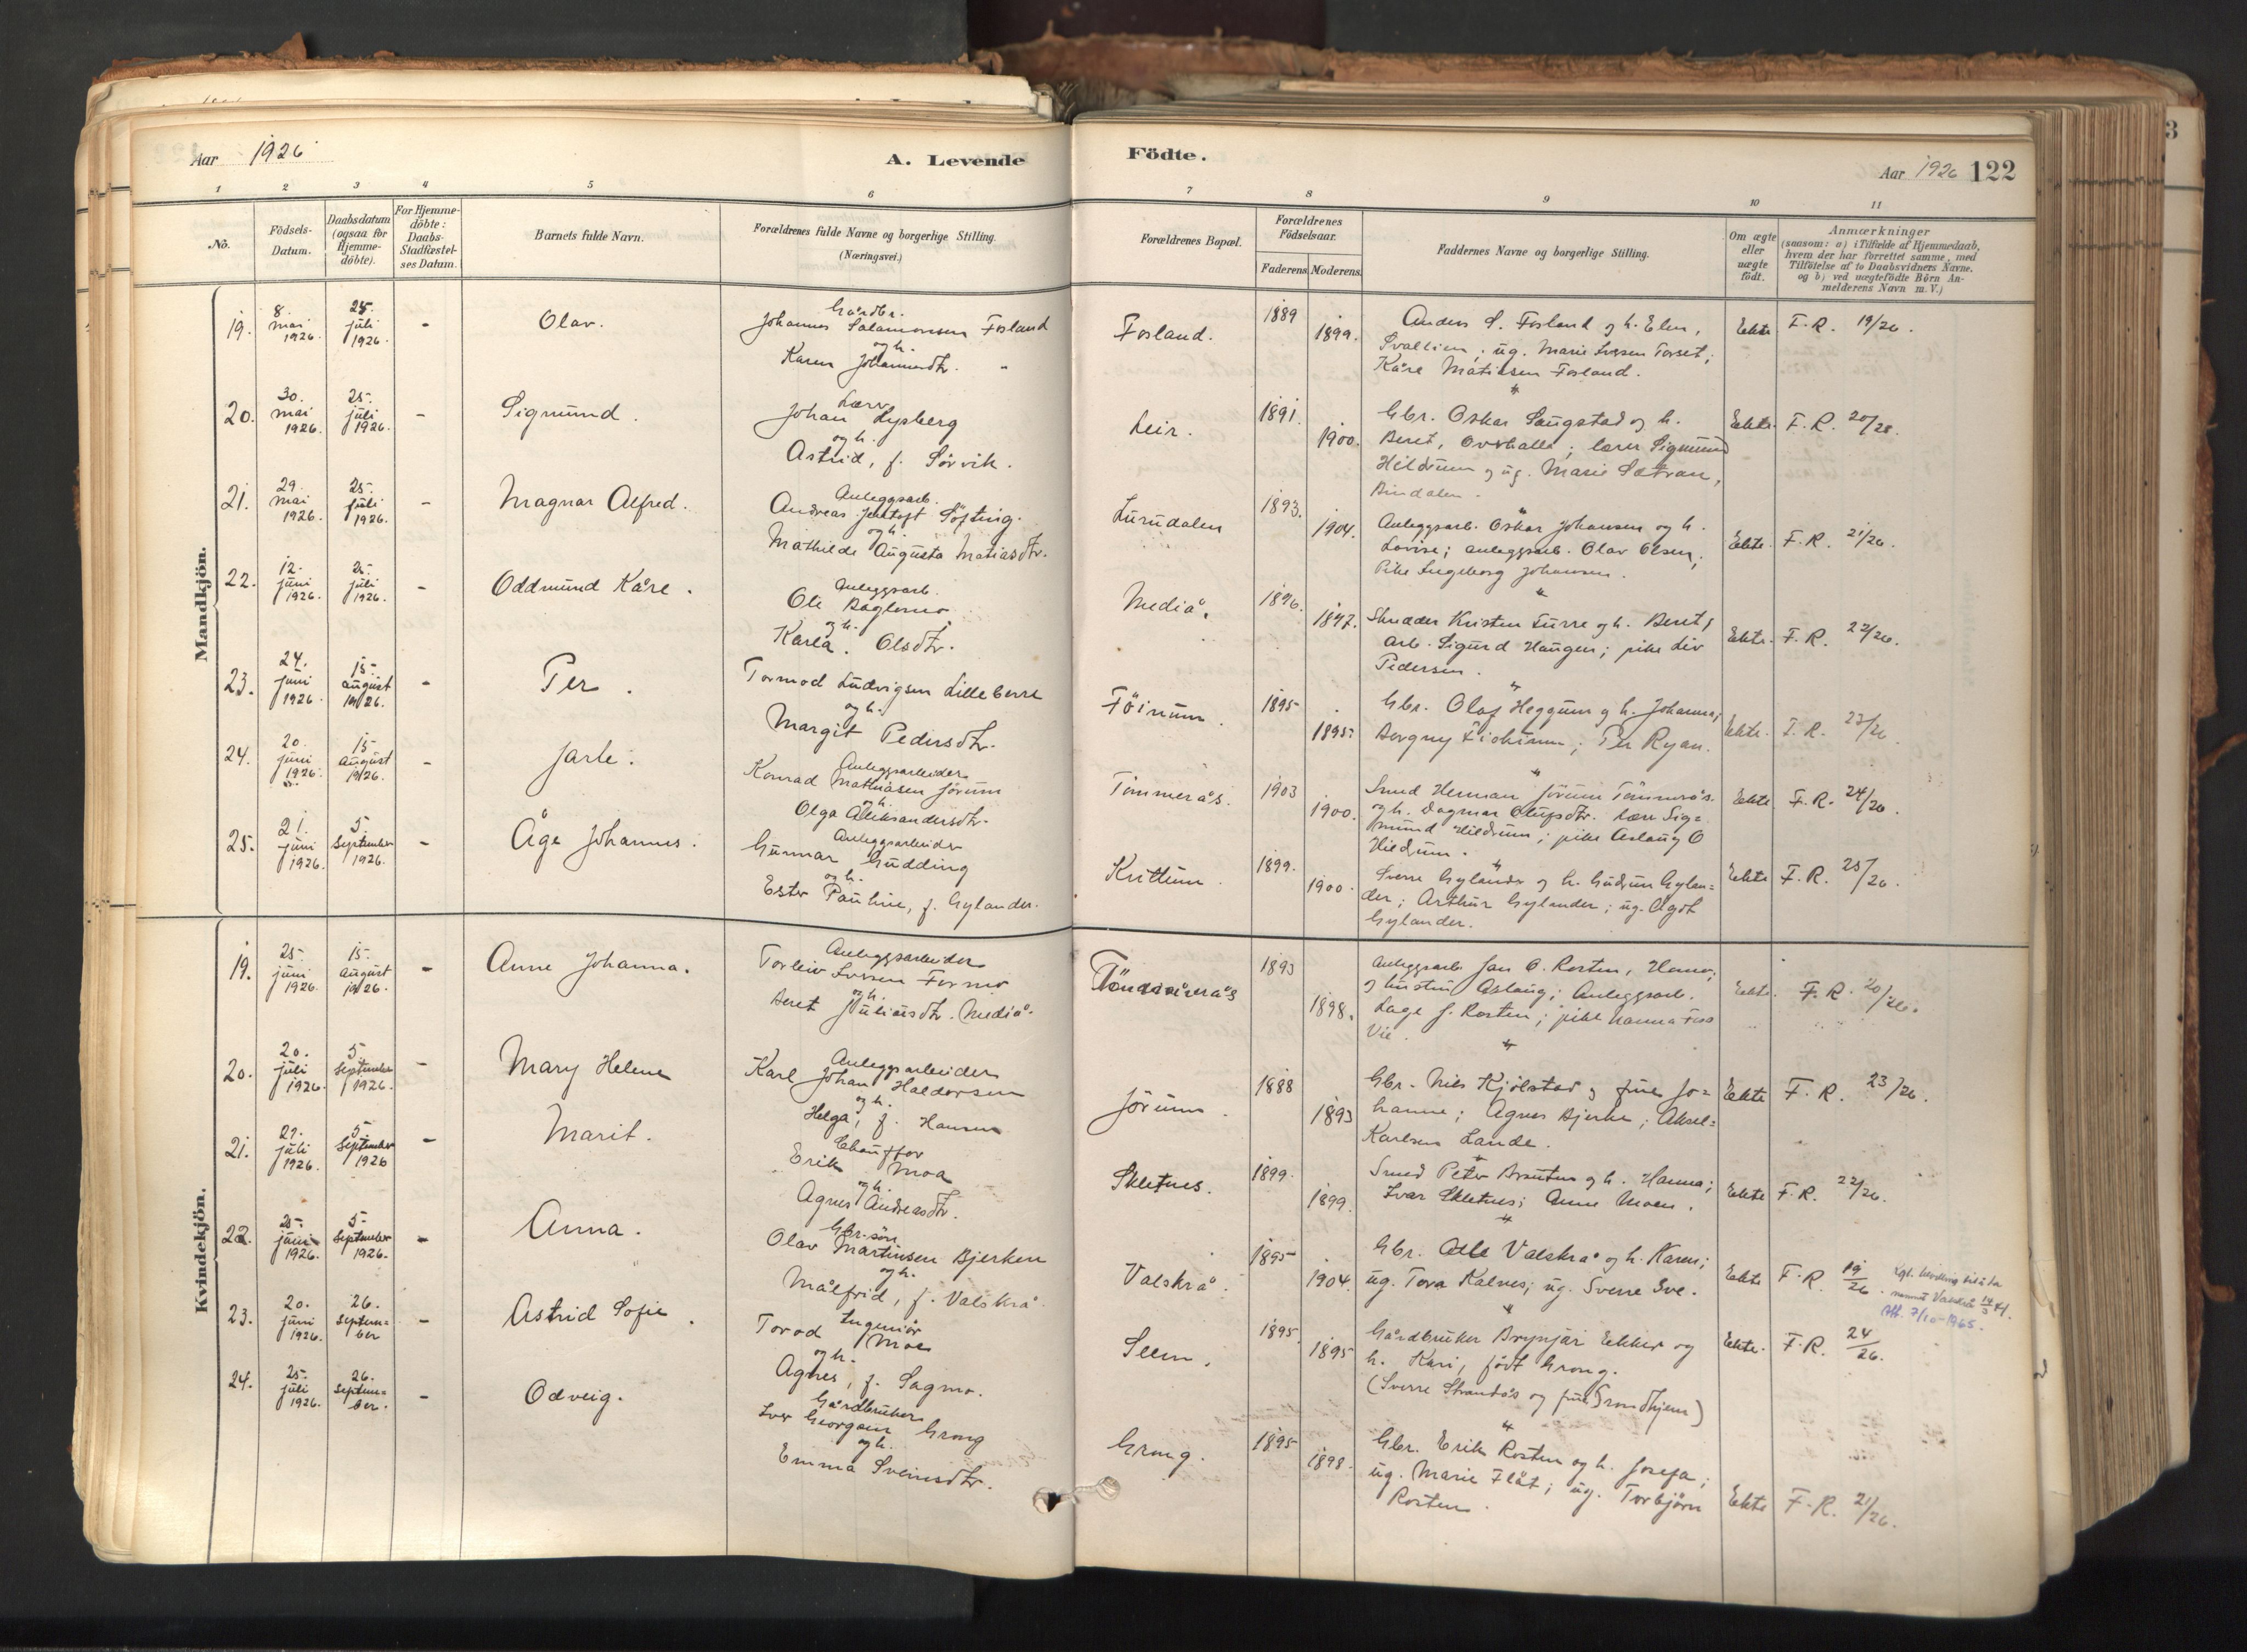 Aar 1926
A. Levende
1 2 3 4 5 6
No.
Födsels-
Datum.
Daabsdatum
(ogsaa for
Hjemme-
döbte).
For Hjemme-
döbte:
Daabs-
Stadfæstel-
ses Datum.
Barnets fulde Navn.
Forældrenes fulde Navne og borgerlige Stilling.
(Næringsvei.)
Mandkjön.
19. 8. mai 1926. 25. juli 1926. - Olav.
Gårdbr.
Johannes Salamonsen Fosland
og h.
Karen Johannesdtr. "
20. 30. mai 1926. 25. juli 1926. - Sigmund.
Lærer
Johan Lysberg
og h.
Astrid, f. Sörvik.
21. 29. mai 1926. 25. juli 1926. - Magnar Alfred.
Anleggsarb.
Andreas Jentoft Söfting.
og h.
Mathilde Augusta Matiasdtr.
22. 12. juni 1926. 25. juli 1926. - Oddmund Kåre.
Anleggsarb.
Ole Baglomo
og h.
Karla. Olsdtr.
23. 24. juni 1926. 15. august 1926. - Per.
Tormod Ludvigsen Lilleberre
og h.
Margit Pedersdtr.
24. 20. juni 1926. 15. august 1926. - Jarle.
Anleggsarbeider
Konrad Mathiasen Jörum
og h.
Olga Aleksandersdtr.
25. 21. juni 1926. 5. September 1926. - Åge Johannes.
Anleggsarbeider
Gunnar Gudding
og h.
Ester Pauline, f. Gylander.
Kvindekjön.
19. 25. juni 1926. 15. august 1926. - Anne Johanna.
Anleggsarbeider
Torleiv Iversen Formo
og h.
Beret Juliusdtr. Mediå.
20. 20. juli 1926. 5. September 1926. - Mary Helene
Anleggsarbeider
Karl Johan Haldorsen
og h.
Helga, f. Hansen
21. 27. juli 1926. 5. September 1926 - Marit.
Chauffør
Erik Moa
og h.
Agnes Andreasdtr.
22. 25. juni 1926. 5. September 1926. - Anna.
Gbr.søn
Olav Martinsen Bjerken
og h.
Målfrid, f. Valskrå.
23. 20. juni 1926. 26. Septem=ber - Astrid Sofie.
Ingeniør
Torod Moe
og h.
Agnes, f. Sagmo.
24. 25. juli 1926. 26. Septem=ber. - Odveig.
Gårdbruker
Iver Georgsen Grong
og h.
Emma Sveinsdtr.
Födte.
Aar 1926 122
7 8 9 10 11
Forældrenes Bopæl.
Forældrenes
Födselsaar.
Faderens. Moderens.
Faddernes Navne og borgerlige Stilling.
Om ægte
eller
uægte
födt.
Anmærkninger
(saasom: a) i Tilfælde af Hjemmedaab,
hvem der har forrettet samme, med
Tilföielse af to Daabsvidners Navne.
og b) ved uægtefödte Börn An-
melderens Navn m. V.)
Fosland. 1889 1899.
Anders S. Fosland og h. Elen,
ug. Marie Iversen Torset;
Kåre Matiasen Fosland.
Ekte F. R. 19/26.
Leir. 1891. 1900.
Gbr. Oskar Saugstad og h.
Beret, Overhalla; lærer Sigmund
Hildrum og ug. Marie Sætran,
Bindalen.
Ekte. F. R. 20/26.
Lurudalen 1893. 1904.
Anleggsarb. Oskar Johansen og h.
Lovise; anleggsarb. Olav Olsen;
Pike Ingeborg Johansen.
Ekte. F. R. 21/26.
Mediå. 1896. 1897.
Skredder Kristen Lurre og h. Beret;
arb. Sigurd Haugen; pike Liv
Pedersen.
Ekte. F. R. 22/26.
Föinum. 1895 1895.
Gbr. Olaf Heggum og h. Johanna;
Borgny; Per Ryan.
Ekte. F. R. 23/26
Tömmerås. 1903 1900.
Smed Herman Jörum Tömmerås.
og h. Dagmar Olufsdtr. Lærer Sig=
mund Hildrum; pike Aslaug O
Hildrum.
Ekte F. R. 24/26.
Kvittum. 1899. 1900.
Sverre Gylander og h. Gudrun Gylan=
der; Arthur Gylander; ug. Agot
Gylander.
Ekte F. R. 25/26.
Tömmerås 1893 1898.
Anleggsarb. Jan O. Rosten,
og hustru Aslaug; Anleggsarb.
Lage J. Rosten; pike Hanna
Vie.
Ekte. F. R. 20/26.
Jörum. 1888 1893
Gbr. Nils Kjölstad og frue Jo=
hanne; Agnes Bjerke; Aksel=
Karlsen Lande.
Ekte F. R. 23/26.
Skletnes. 1899. 1899.
Smed Peter og h. Hanna;
Ivar Skletnes; Anne Moen.
Ekte F. R. 22/26.
Valskrå. 1895 1904.
Gbr. Atle Valskrå og h. Karen;
ug. Tora Kalnes; ug. Sverre Sve.
Ekte F. R. 19/26.
Kgl. bevilling til å ta
navnet Valskrå
7/10-1965.
Seem. 1895. 1895
Gårdbruker Brynjar Ekker og
h. Kari, födt Grong.
(Sverre Strandås og frue Trondhjem)
Ekte. F. R. 24/26.
Grong. 1895 1898.
Gbr. Erik Rosten og h. Josefa;
ug. Marie Flåt; ug. Torbjörn
Rosten.
Ekte F. R. 21/26.